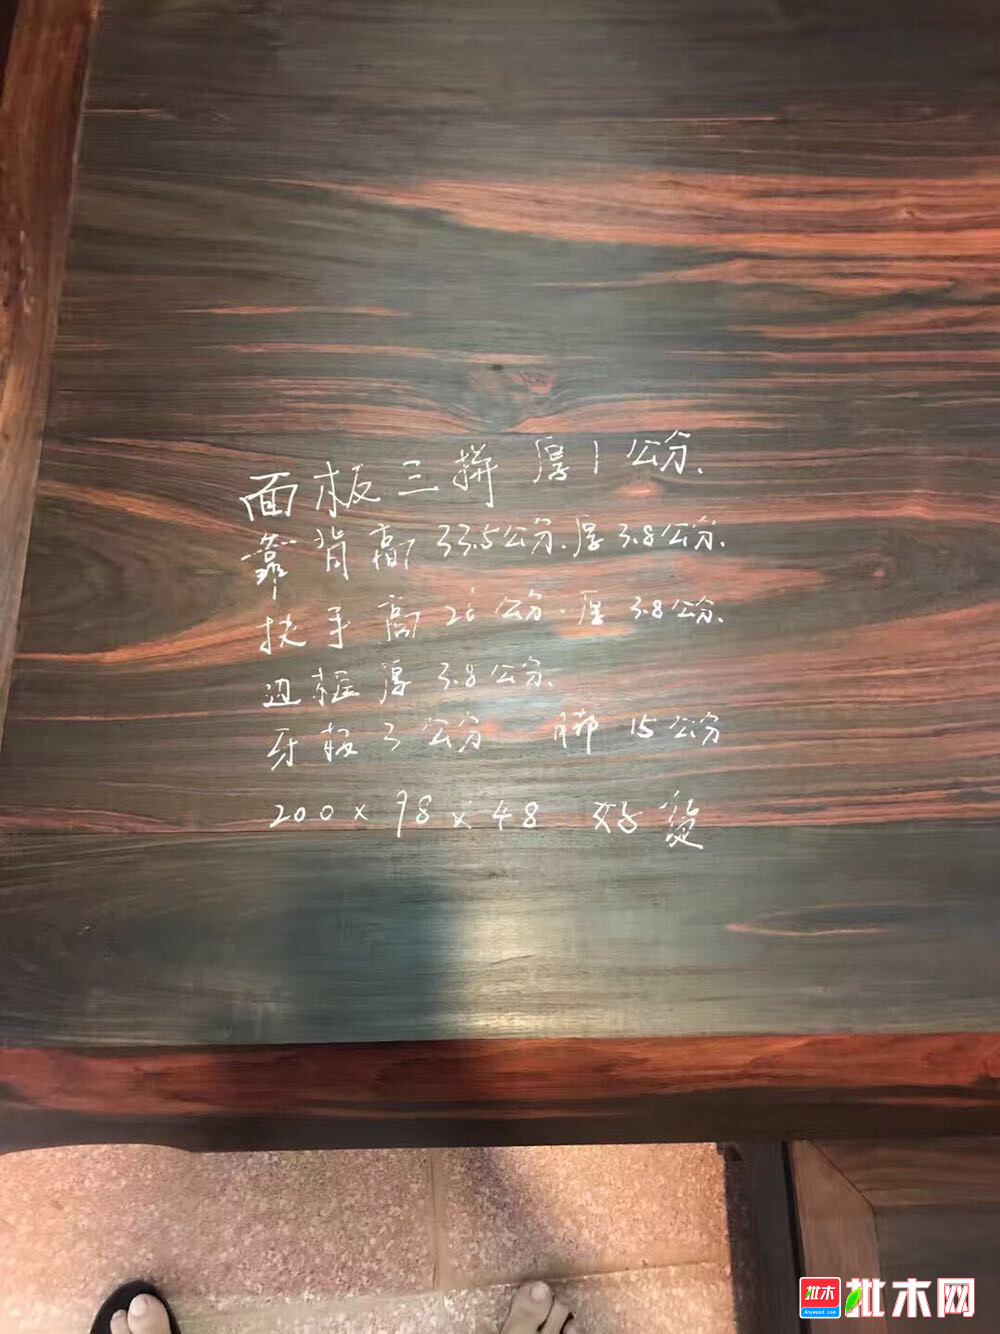 面板三拼 厚1公分.
靠背高33.5公分.厚3.8公分.
扶手高 公分.厚3.8公分.
边框厚3.8公分.
牙板3公分 脚15公分
200×98×48 好货
批木
Anywood.com
批木网